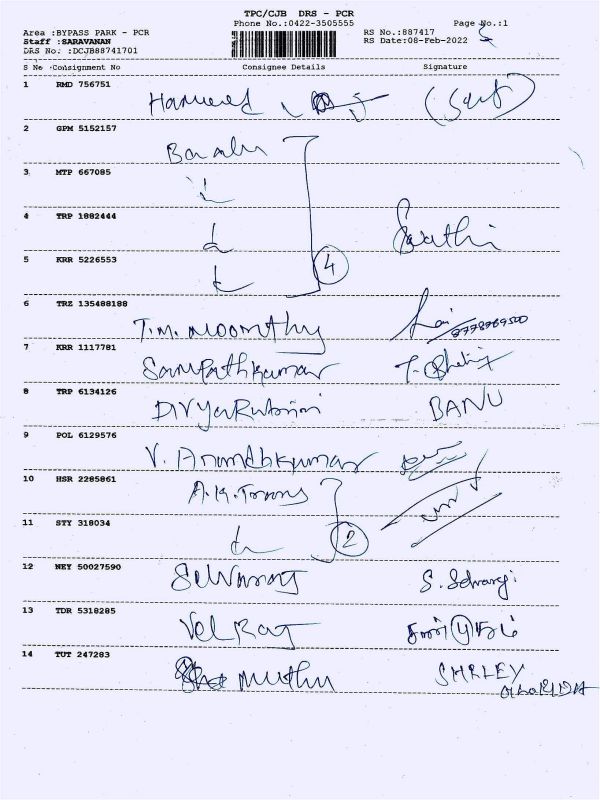 TPC/CJB DRS - PCR
Phone No.:0422-3505555
Page No.:1
Area :BYPASS PARK - PCR
Staff :SARAVANAN
DRS No :DCJB88741701
RS No.:887417
RS Date:08-Feb-2022
S No Consignment No Consignee Details Signature
1 RMD 756751 Hameed
2 GPM 5152157
3 MTP 667085
4 TRP 1882444 Swathi
5 KRR 5226553 4
6 TRZ 135488188 T.M. Moorthy
7 KRR 1117781 Sampathkumar
8 TRP 6134126 BANU
9 POL 6129576 V. Anandhkumar
10 HSR 2285861 A.K.Trans
11 STY 318034 2
12 NEY 50027590 Selvaraj S. Selvaraj
13 TDR 5318285 Vel Raj
14 TUT 247283 Muthu SHRLEY